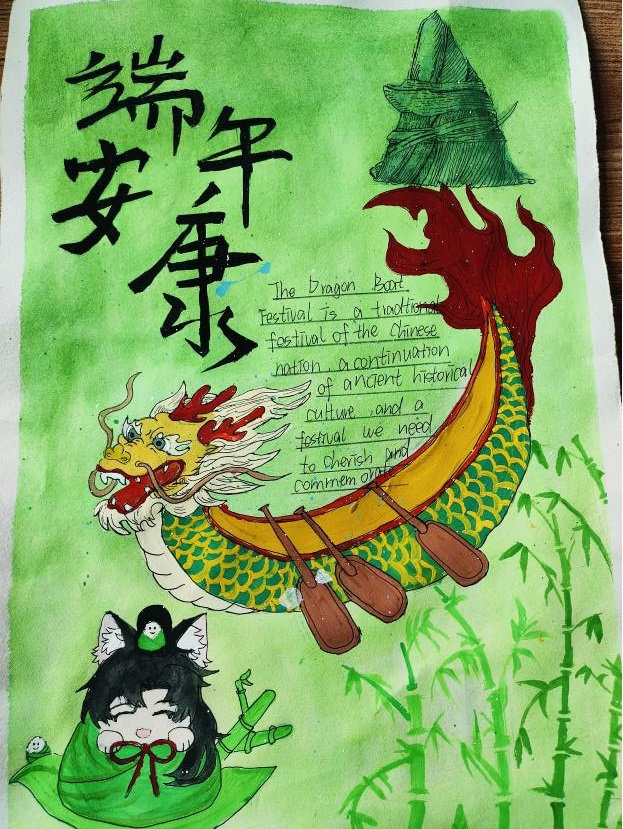 端午
安康
The Dragon Boat
Festival is a traditional
festival of the Chinese
nation, a continuation
of ancient historical
culture, and a
festival we need
to cherish and
commemorate